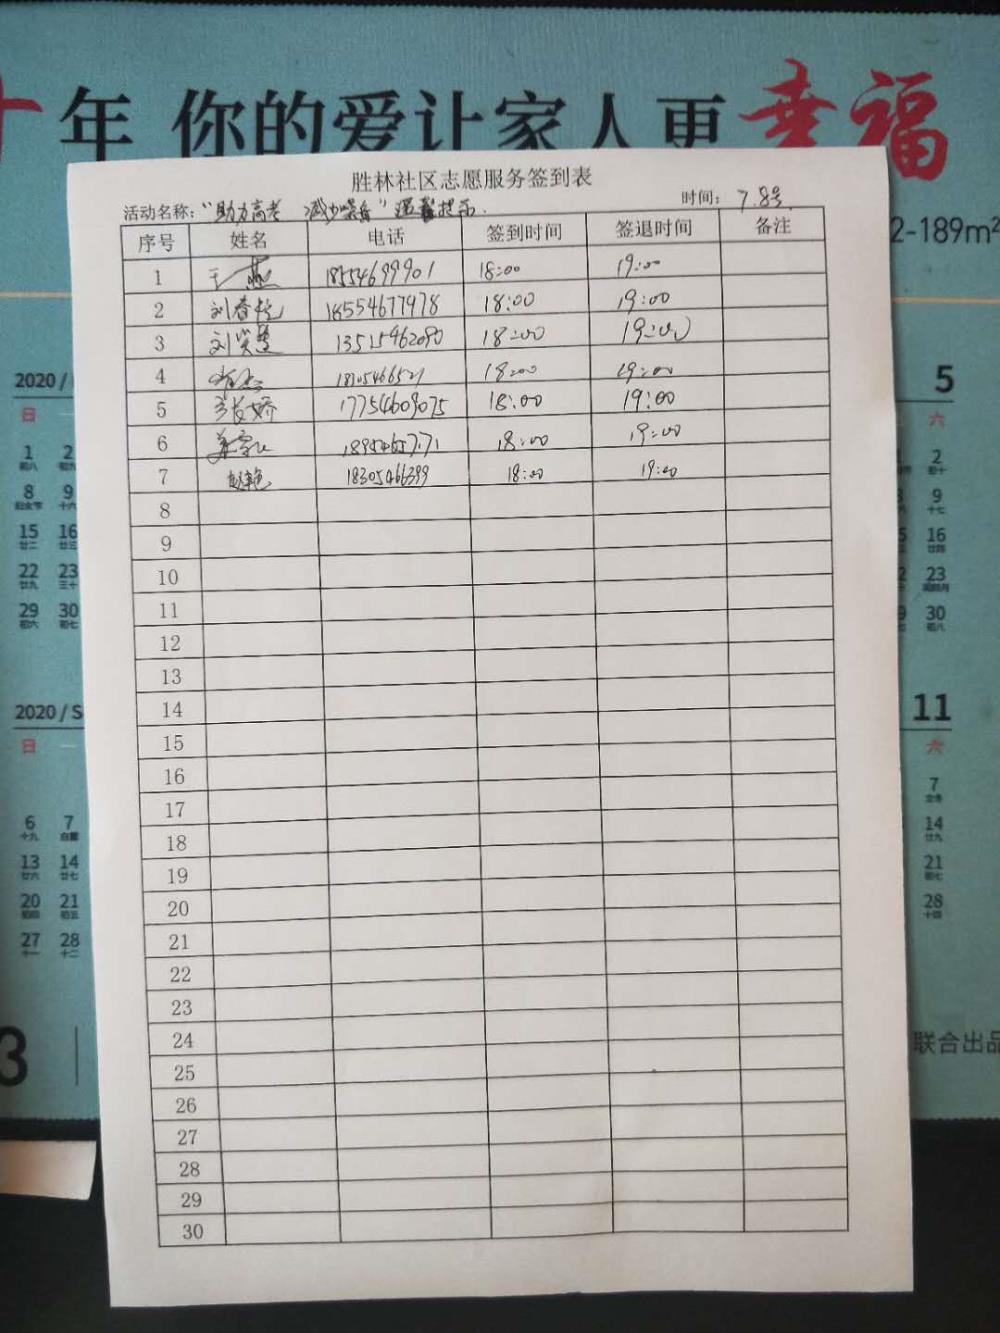 十年 你的爱让家人更幸福
2-189m²
胜林社区志愿服务签到表
活动名称："助力高考 减少噪音"温馨提示. 时间：7.8号.
序号 姓名 电话 签到时间 签退时间 备注
1 王燕 18554699901 18:00 19:00
2 刘春艳 18554677978 18:00 19:00
3 刘笑楚 13515462090 18:00 19:00
4 18:00 19:00
5 17754609075 18:00 19:00
6 18:00 19:00
7 赵艳 18305466399 18:00 19:00
8
9
10
11
12
13
14
15
16
17
18
19
20
21
22
23
24
25
26
27
28
29
30
2020 /
日
1 2
8 9
15 16
22 23
29 30
2020 / S
日
6 7
13 14
20 21
27 28
3
5
六
2
9
16
23
30
11
六
7
14
21
28
联合出品